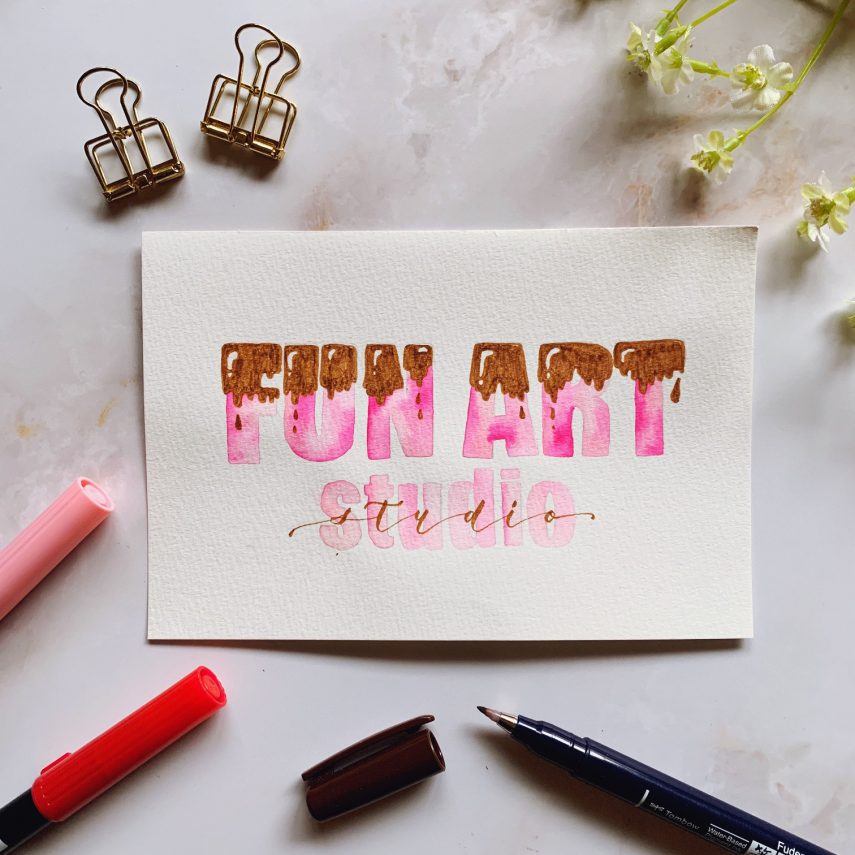 FUN ART
studio
studio
Tombow
Water-Based